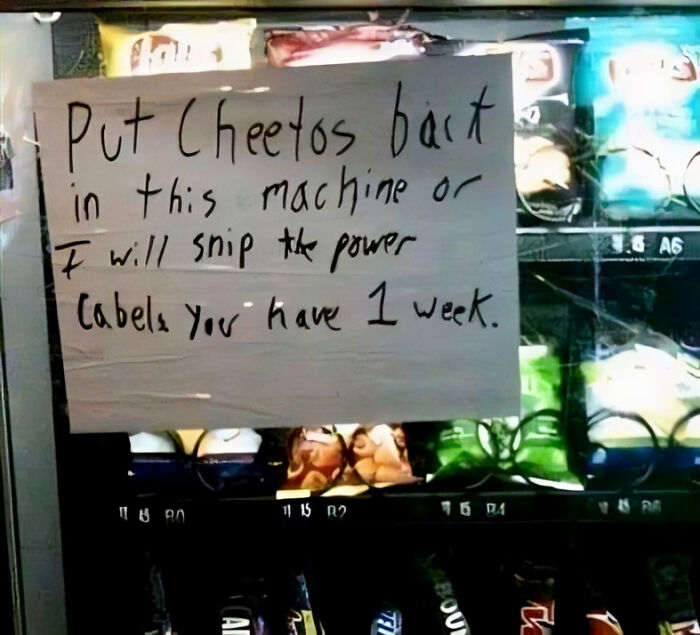 Put Cheetos back
in this machine or
I will snip the power
Cabels You have 1 week.
A6
B0
B2